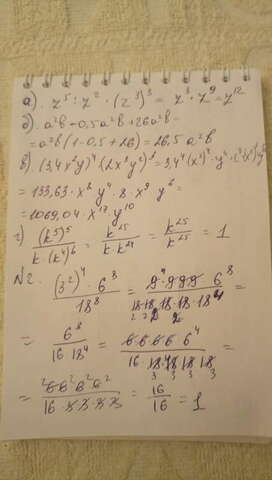 а). z⁵ : z² · (z³)³ = z³ · z⁹ = z¹²
б). a²b - 0,5a²b + 26a²b =
= a²b(1 - 0,5 + 26) = 26,5 a²b
в). (3,4x²y)⁴ · (2x³y²)³ = 3,4⁴(x²)⁴ · y⁴ · 2³(x³)³y⁶
= 133,63 · x⁸ y⁴ · 8 · x⁹ y⁶ =
= 1069,04 · x¹⁷ y¹⁰
г) (k⁵)⁵ / k · (k⁴)⁶ = k²⁵ / k · k²⁴ = k²⁵ / k²⁵ = 1
№2. (3²)⁴ · 6⁸ / 18⁸ = 9 · 9 9 9 · 6⁸ / 18 · 18 · 18 · 18 · 18⁴ =
= 6⁸ / 16 · 18⁴ = 6 6 6 6 · 6⁴ / 16 · 18 · 18 · 18 · 18 =
= 6 6 6 6 / 16 · 3 · 3 · 3 · 3 = 16 / 16 = 1